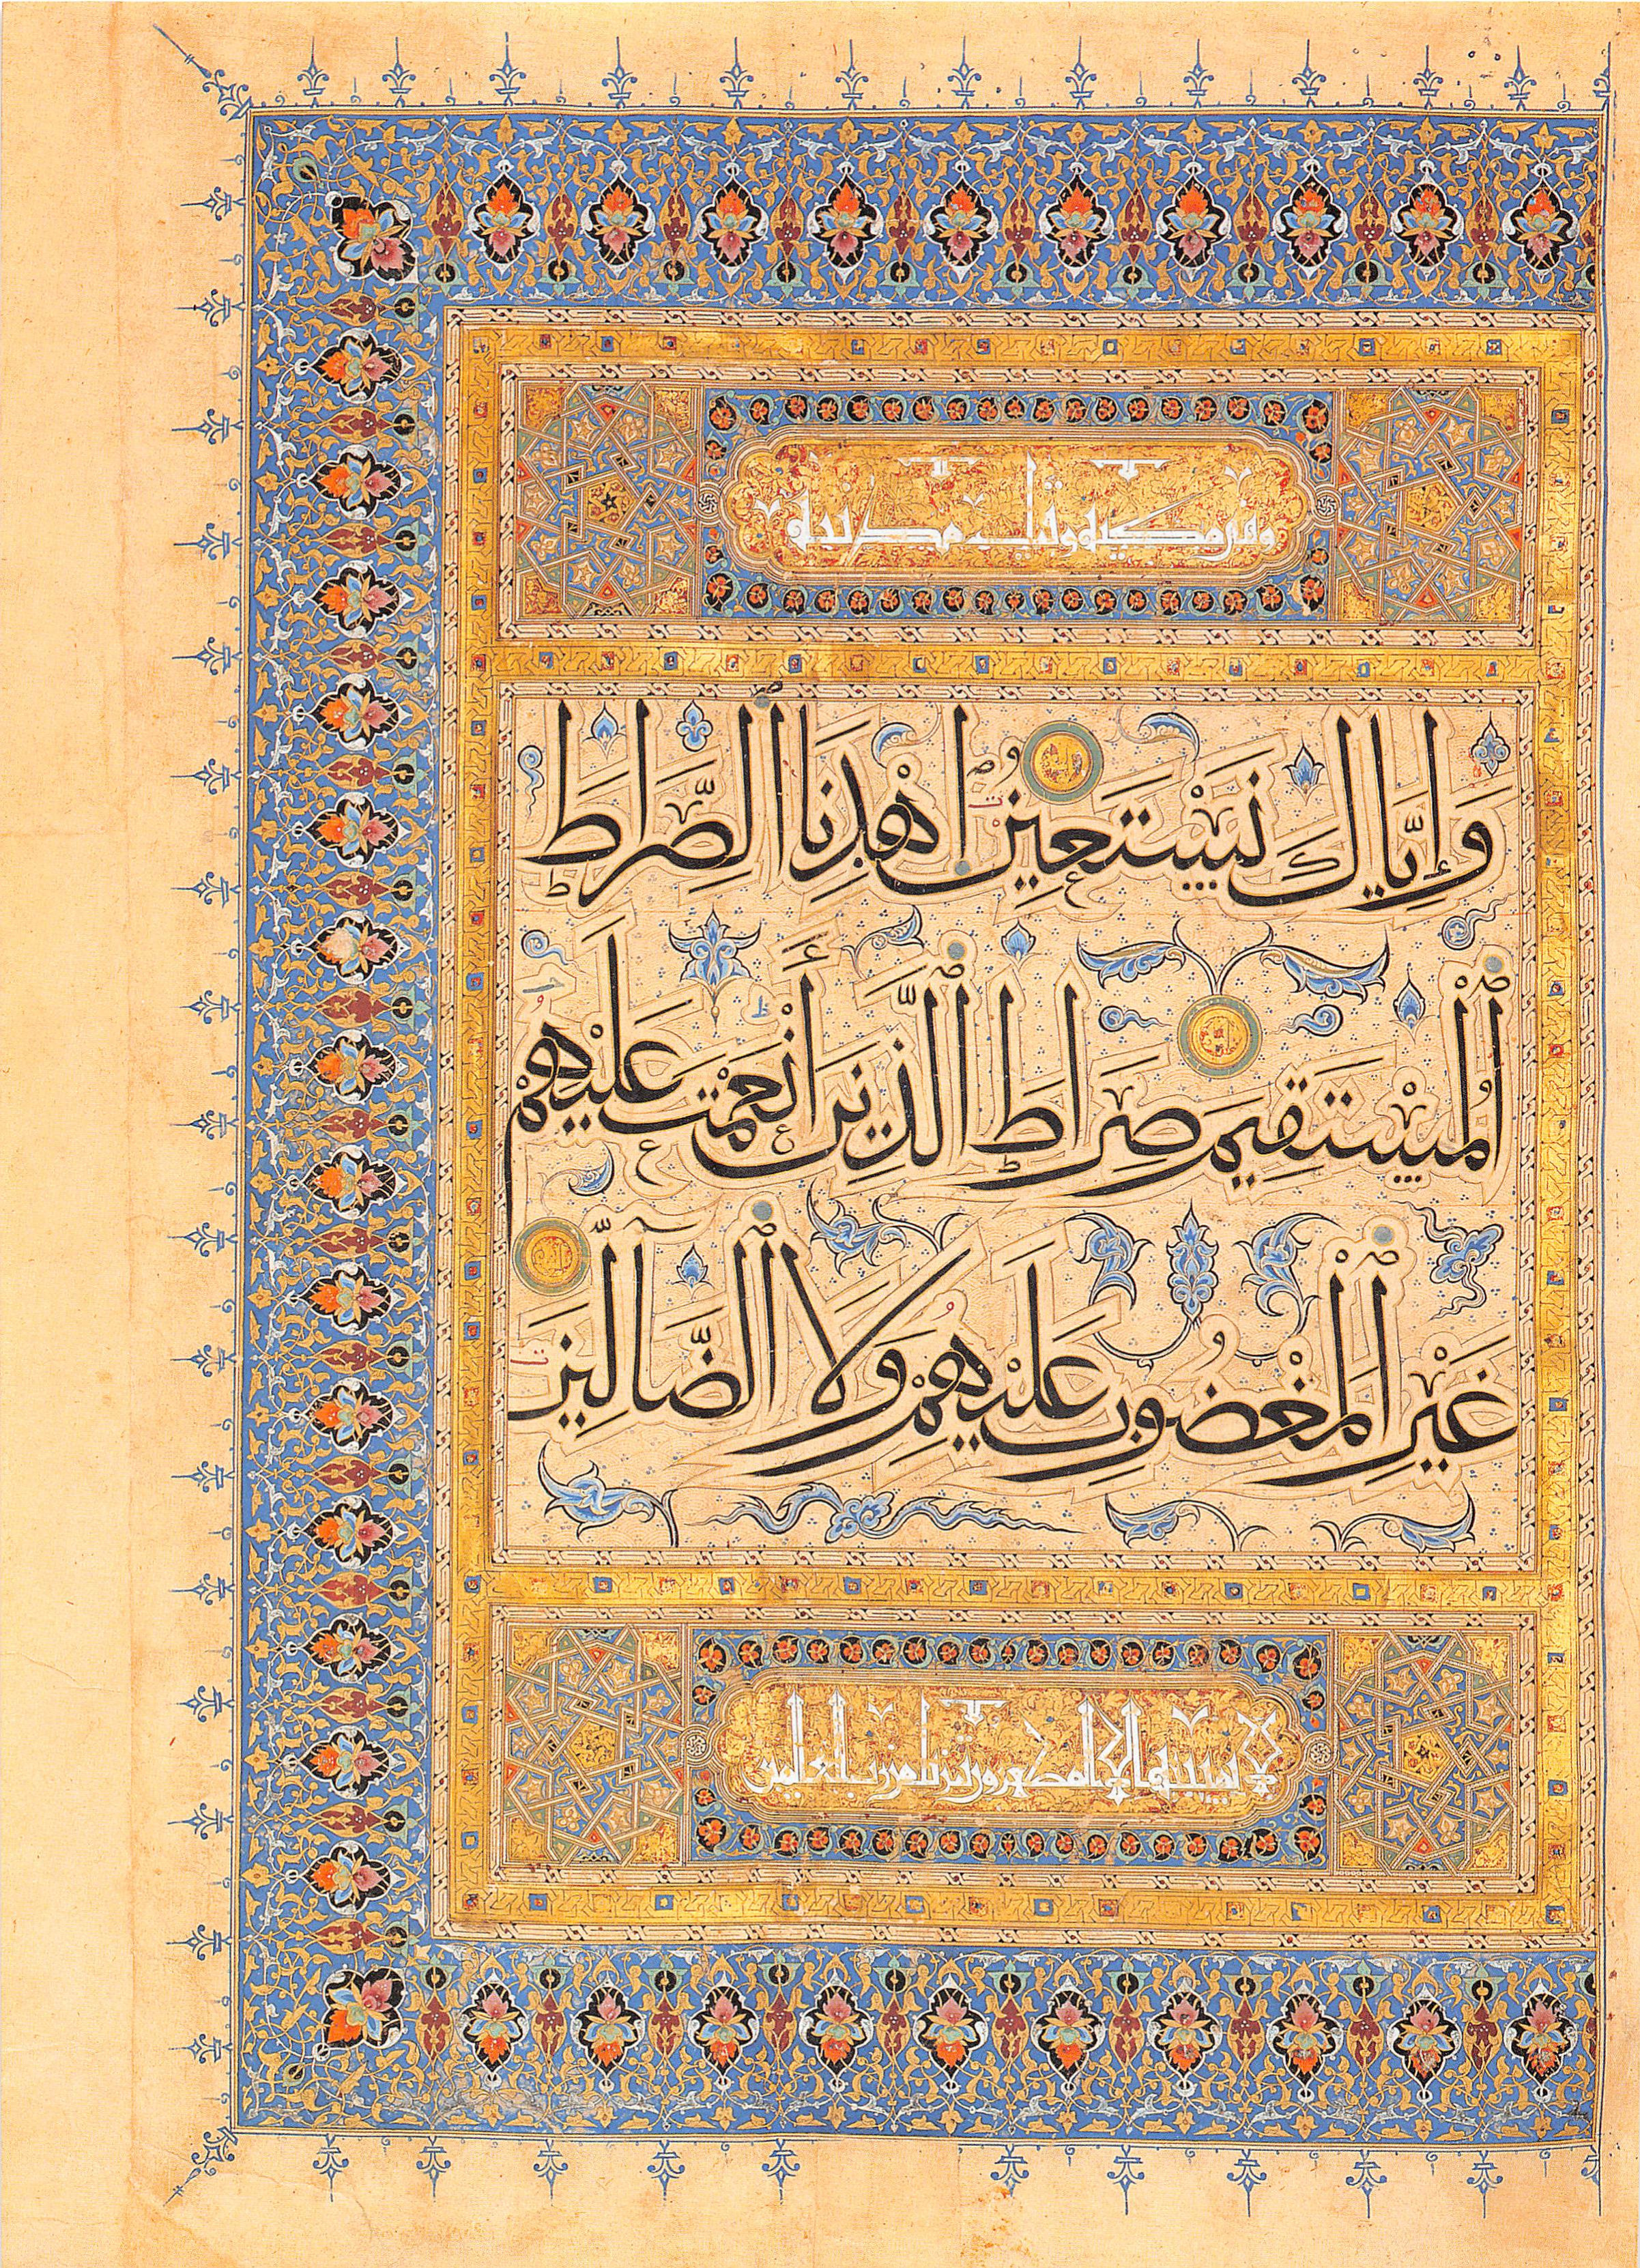 وهي مكية وقيل مدنية
وَإِيَّاكَ نَسْتَعِينُ اهْدِنَا الصِّرَاطَ
الْمُسْتَقِيمَ صِرَاطَ الَّذِينَ أَنْعَمْتَ عَلَيْهِمْ
غَيْرِ الْمَغْضُوبِ عَلَيْهِمْ وَلَا الضَّالِّينَ
لا يمسه الا المطهرون تنزيل من رب العالمين